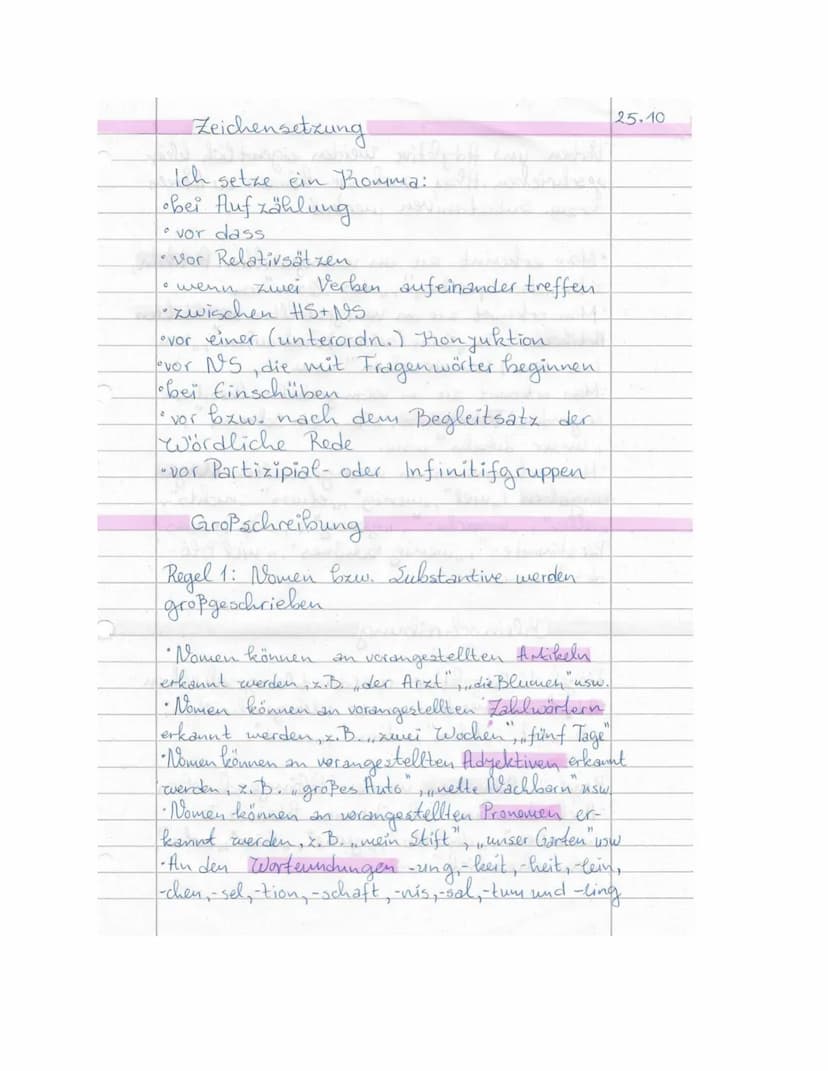 Zeichensetzung
25.10
Ich setze ein Komma:
• bei Aufzählung
• vor dass
• vor Relativsätzen
• wenn zwei Verben aufeinander treffen
• zwischen HS+NS
• vor einer (unterordn.) Konjuktion
• vor NS, die mit Fragenwörter beginnen
• bei Einschüben
• vor bzw. nach dem Begleitsatz der
Wördliche Rede
• vor Partizipial- oder Infinitifgruppen
Großschreibung
Regel 1: Nomen bzw. Substantive werden
großgeschrieben
• Nomen können an vorangestellten Artikeln
erkannt werden, z.B. „der Arzt", „die Blumen" usw.
• Nomen können an vorangestellten Zahlwörtern
erkannt werden, z.B. „zwei Wochen", „fünf Tage"
• Nomen können an vorangestellten Adjektiven erkannt
werden, z.B. „großes Auto", „nette Nachbarn" usw.
• Nomen können an vorangestellten Pronomen er-
kannt werden, z.B. „mein Stift", „unser Garten" usw
• An den Wortenndungen -ung, -keit, -heit, -lein,
-chen, -sel, -tion, -schaft, -nis, -sal, -tum und -ling